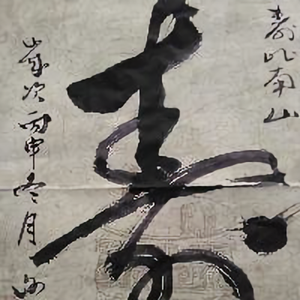 壽比南山
壽
歲次丙申冬月